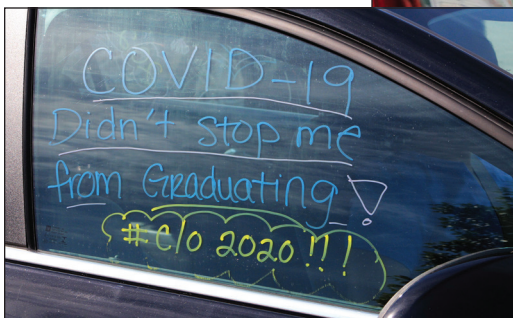 COVID-19
Didn't stop me
from Graduating!
# c/o 2020 !!!